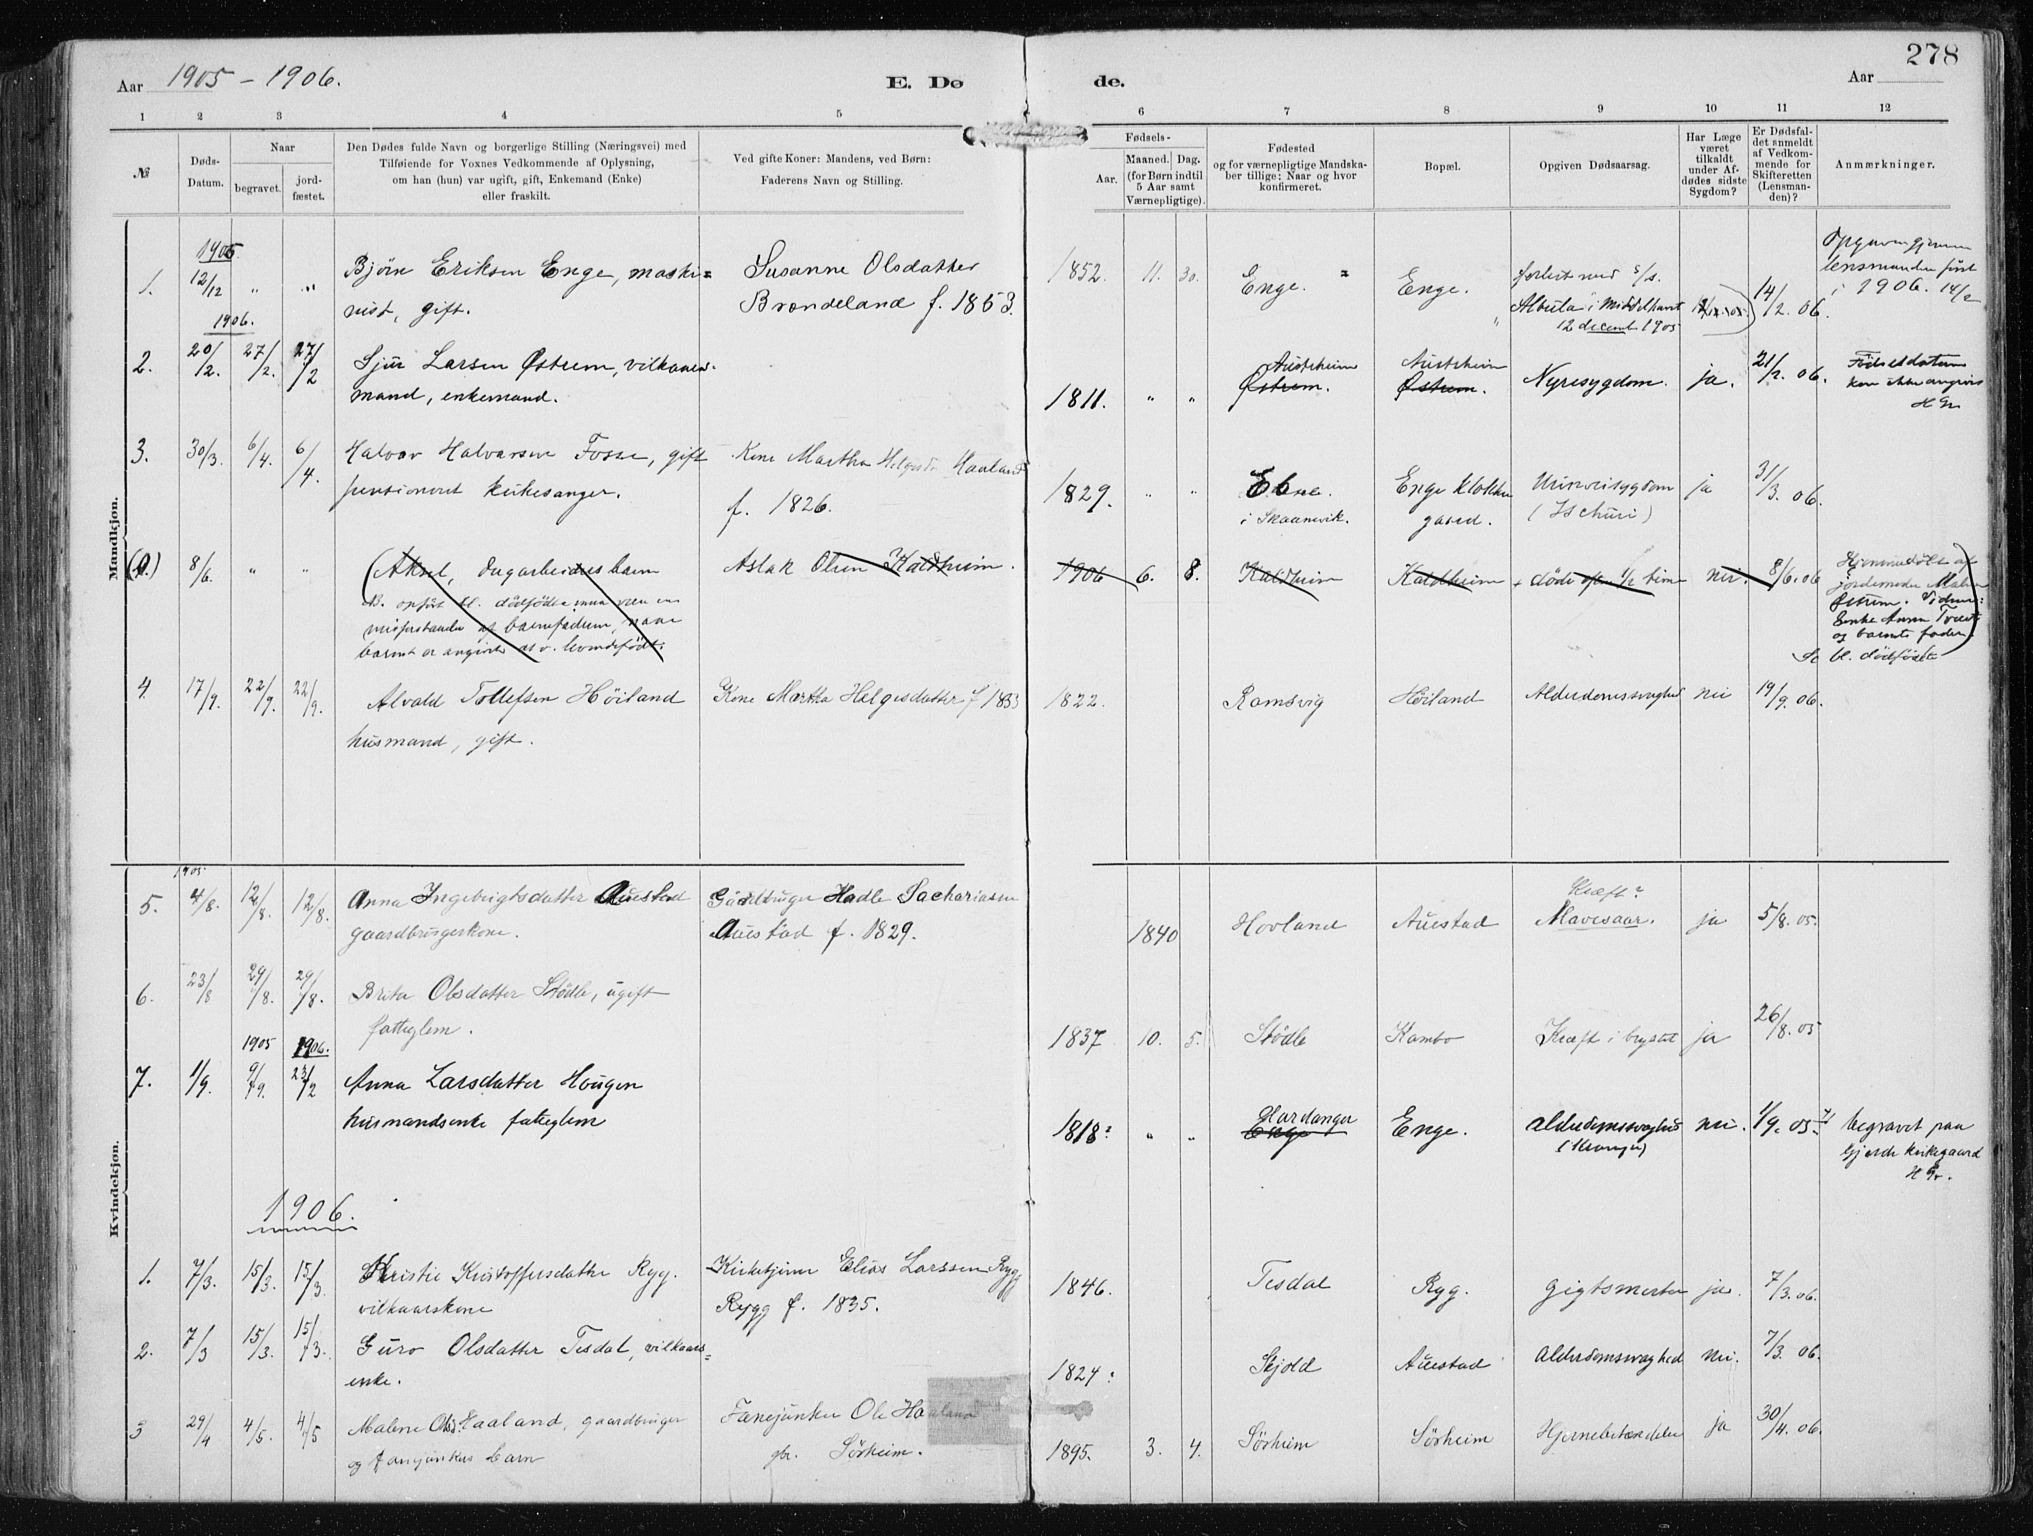 278
Aar 1905 - 1906.
E. Dø
de.
Aar
1 2 3 4 5 6 7 8 9 10 11 12
№
Døds-
Datum.
Naar
begravet.
jord-
fæstet.
Den Dødes fulde Navn og borgerlige Stilling (Næringsvei) med
Tilføiende for Voxnes Vedkommende af Oplysning,
om han (hun) var ugift, gift, Enkemand (Enke)
eller fraskilt.
Ved gifte Koner: Mandens, ved Børn:
Faderens Navn og Stilling.
Fødsels-
Aar.
Maaned. Dag.
(for Børn indtil
5 Aar samt
Værnepligtige).
Fødested
og for værnepligtige Mandska-
ber tillige: Naar og hvor
konfirmeret.
Bopæl.
Opgiven Dødsaarsag.
Har Læge
været
tilkaldt
under Af-
dødes sidste
Sygdom?
Er Dødsfal-
det anmeldt
af Vedkom-
mende for
Skifteretten
(Lensman-
den)?
Anmærkninger.
Mandkjøn.
1905
1. 12/12 " "
Bjørn Eriksen Enge, maski=
nist, gift.
Susanne Olsdatter
Brændeland f. 1853.
1852. 11. 30.
Enge.
Enge.
forlist med s/s.
Albula i Middelhavet
12 decemb. 1905
14/2. 06.
lensmanden først
i 1906. 14/2
1906.
2. 20/2. 27/2. 27/2
Sjur Larsen Østrem, vilkaars-
mand, enkemand.
1811. " "
Austrheim
Østrem.
Austrheim
Østrem.
Nyresygdom.
ja.
21/2. 06.
Fødselsdatum
kan ikke angives
H Gr
3. 30/3. 6/4. 6/4.
Halvor Halvorsen Fosse, gift
pensioneret kirkesanger.
Kone Martha Helgesdr Haaland
f. 1826.
1829. " "
Ebne.
i Skaanevik.
Enge klokker
gaard.
Urinveisygdom
(Ischuri)
ja
31/3. 06.
8/6. " "
Aksel, dagarbeiders barn
B. opført bl. dødfødte
Aslak Olsen Kaldheim.
1906 6. 8.
Kaldheim
Kaldheim
døde eft. 1/2 time
nei.
8/6. 06
Hjemmedøbt af
jordemoder
Østrem.
Enke Anna
og barnets fader
Se bl. dødfødte
4 17/9. 22/9. 22/9.
Alvald Tollefsen Høiland
husmand, gift.
Kone Martha Helgesdatter f 1833
1822.
Ramsvig
Høiland
Alderdomssvaghed
nei
19/9. 06.
Kvindekjøn.
1905
5. 4/8. 12/8. 12/8.
Anna Ingebrigtsdatter Auestad
gaardbrugerkone.
Gaardbruger Hadle Sachariasen
Auestad f. 1829.
1840
Hovland
Auestad
Kræft?
Mavesaar.
ja
5/8. 05.
6. 23/8 29/8. 29/8.
Brita Olsdatter Stødle, ugift
fattiglem.
1837 10. 5.
Stødle
Kambo
Kræft i brystet
ja
26/8. 05
1905 1906.
7. 1/9. 9/9. 23/2
Anna Larsdatter Hougen
husmandsenke fattiglem
1818? " "
Hardanger
Enge
Enge.
alderdomssvaghed
nei.
1/9. 05.
begravet paa
Gjerde kirkegaard
H Gr.
1906.
1. 7/3. 15/3. 15/3
Kristie Kristoffersdatter Ryg.
vilkaarskone
Kirketjener Elias Larssen Rygg
Rygg f. 1835.
1846.
Tesdal
Ryg.
gigtsmerter
ja.
7/3. 06.
2. 7/3 15/3. 15/3.
Guro Olsdatter Tesdal, vilkaars=
enke.
1824?
Skjold
Auestad
Alderdomssvaghed
nei.
7/3. 06.
3 29/4 4/5. 4/5
Malene Olsd. Haaland, gaardbruger
og fanejunkers barn
Fanejunker Ole Haaland
gbr. Sørheim.
1895. 3. 4.
Sørheim
Sørheim
Hjernebetændelse
ja
30/4. 06.